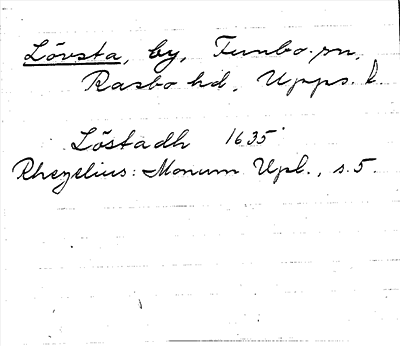 Lövsta, by, Funbo sn,
Rasbo hd, Upps. l.
Löstadh 1635
Rhezelius: Monum Upl., s. 5.